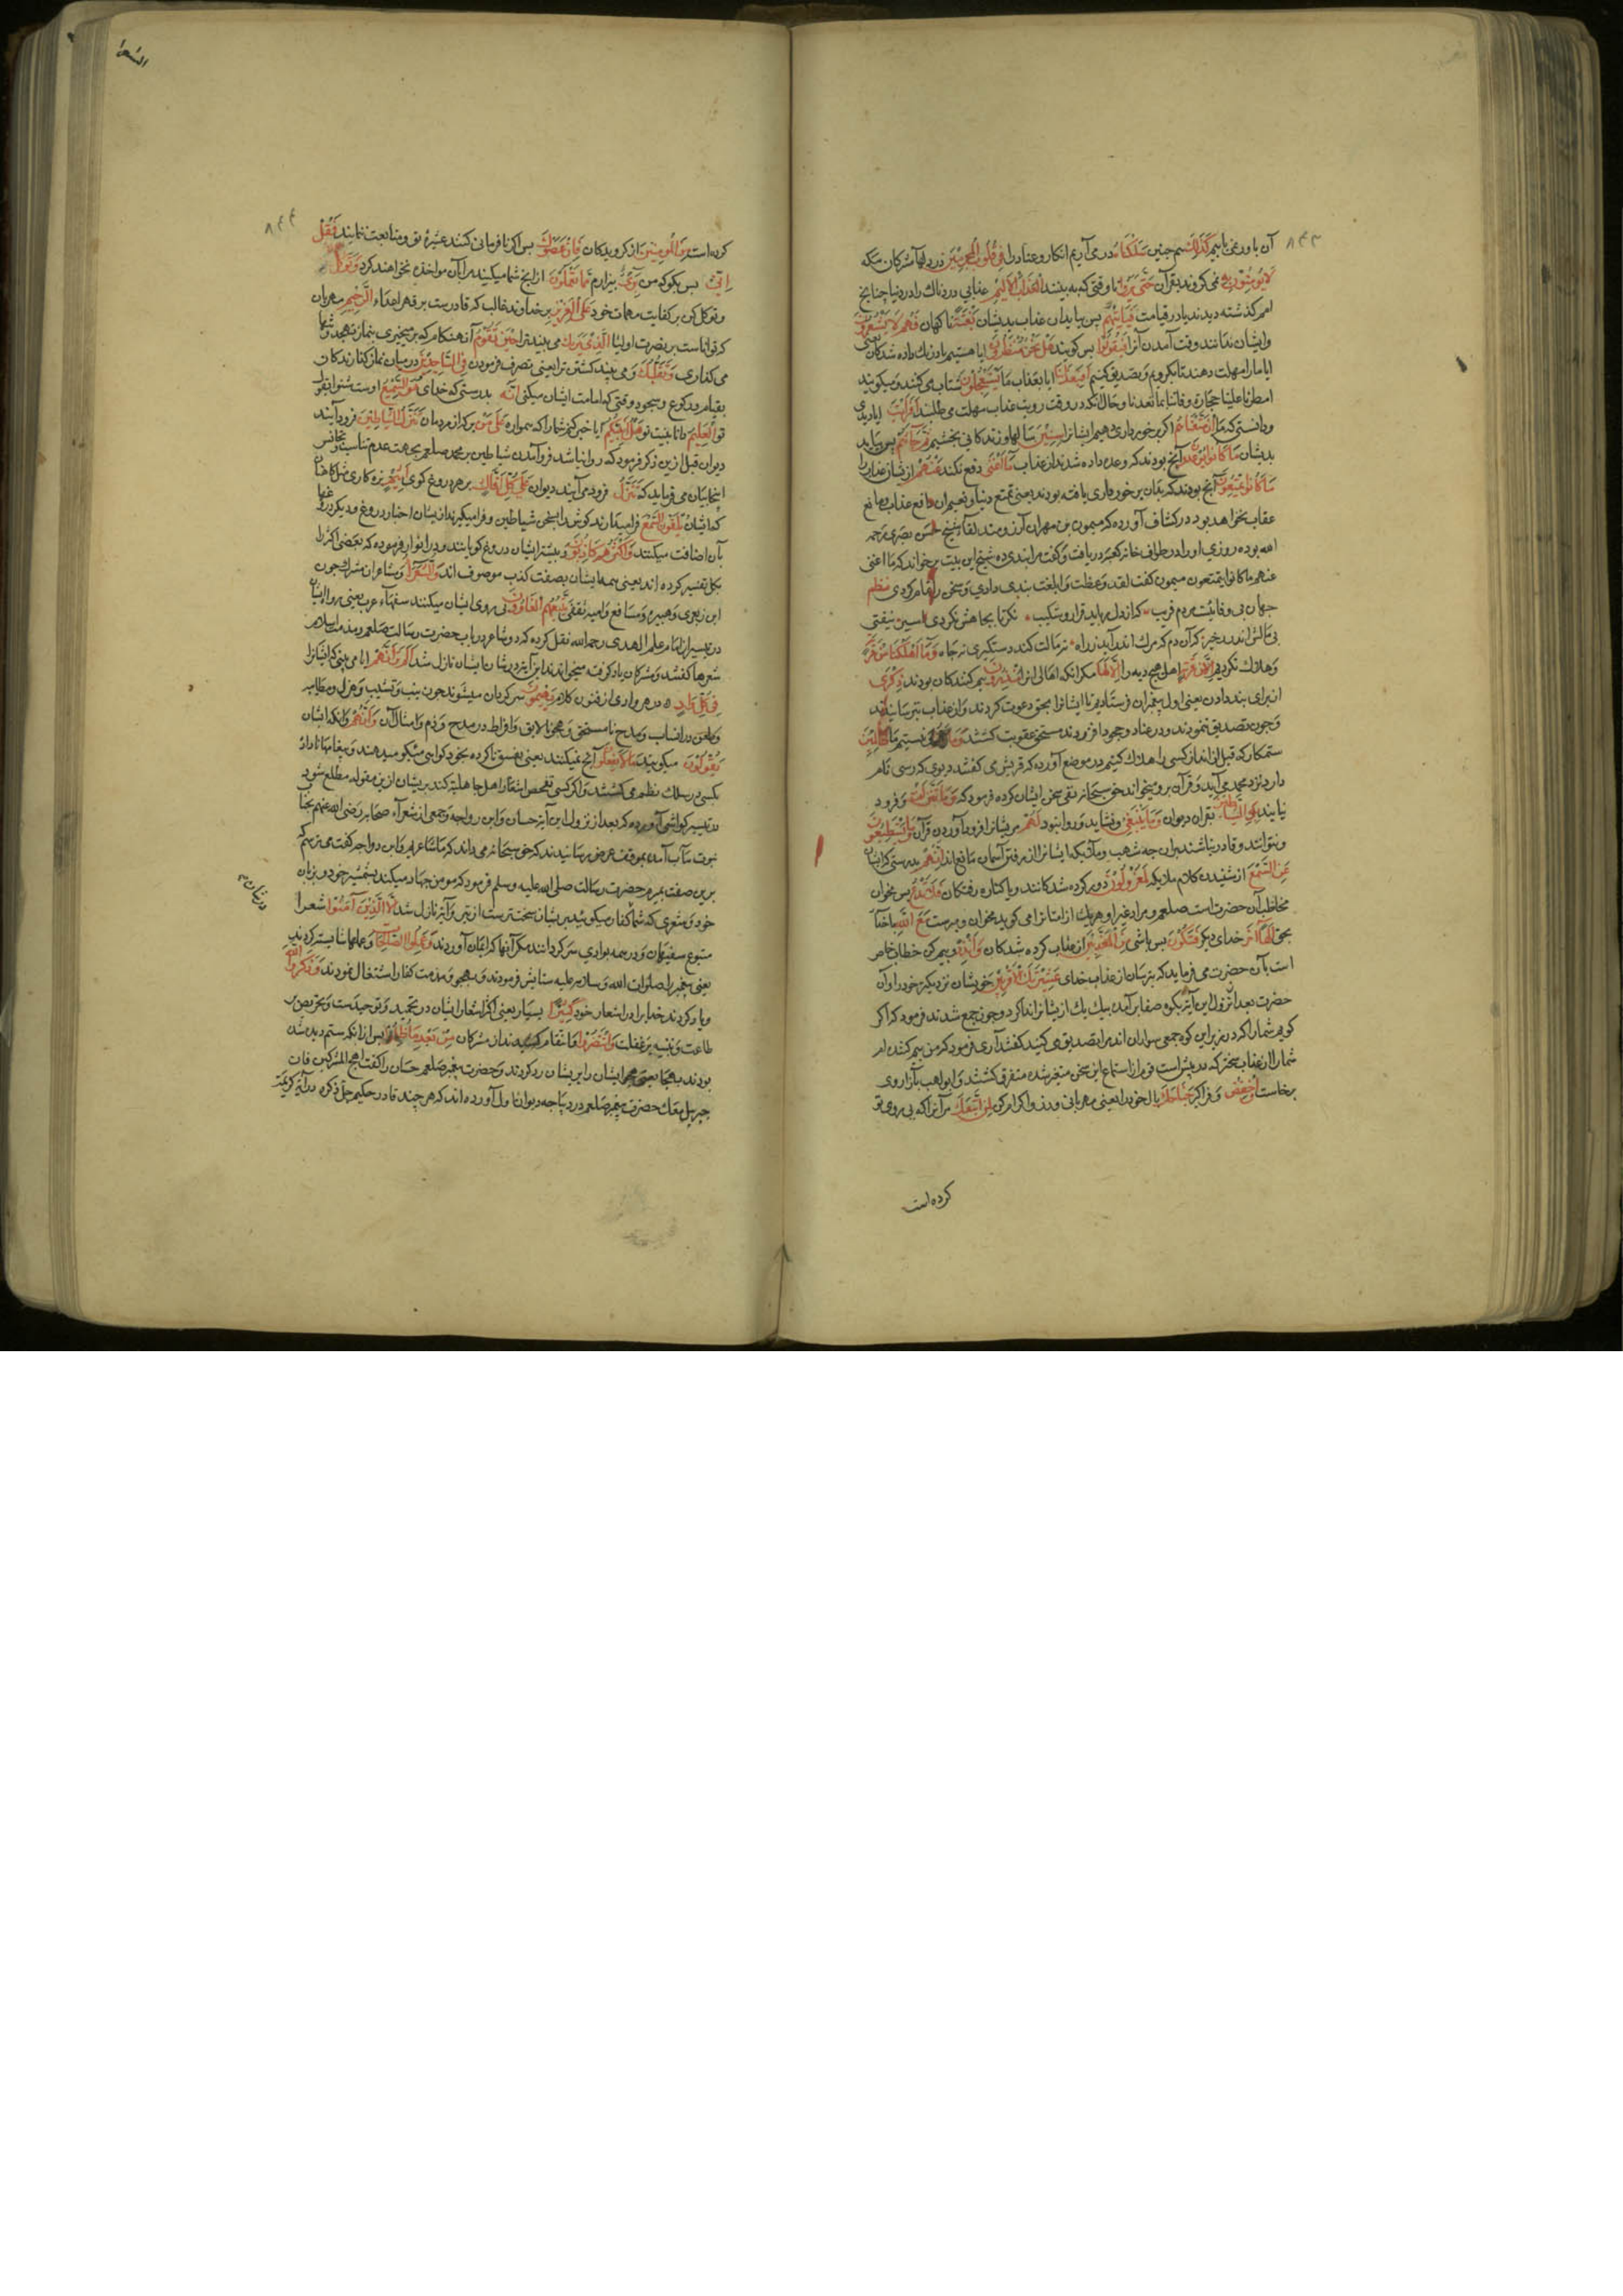 آن باور نمی یابیم كَذَلِكَ هم چنین سَلَكْنَاهُ در می آریم انکار و عناد را فِي قُلُوبِ الْمُجْرِمِينَ در دلهآ مشرکان مکه
لَا يُؤْمِنُونَ بِهِ نمی کروند بقرآن حَتَّى يَرَوُا تا وقتی که به بینند الْعَذَابَ الْأَلِيمَ عذابی دردناك را در دنیا چنانچ
امم کذشته دیدند یا در قیامت فَيَأْتِيَهُمْ پس بیاید آن عذاب بدیشان بَغْتَةً ناکهان وَهُمْ لَا يَشْعُرُونَ
وایشان ندانند وقت آمدن آنرا فَيَقُولُوا پس کویند هَلْ نَحْنُ مُنْظَرُونَ ایا هستیم ما درنك داده شدکان یعنی
ایا ما را مهلت دهند تا بکرویم و تصدیق کنیم أَفَبِعَذَابِنَا ایا بعذاب ما يَسْتَعْجِلُونَ شتاب می کنند و میکویند
امطر علینا حجارة وفاتنا بما تعدنا وحال آنکه در وقت رویت عذاب مهلت می طلبند أَفَرَأَيْتَ ایا دیدی
ودانستی که ما إِنْ مَتَّعْنَاهُمْ اکر برخورداری دهیم ایشانرا سِنِينَ سالها و زندکانی بخشیم ثُمَّ جَاءَهُمْ پس بیاید
بدیشان مَا كَانُوا يُوعَدُونَ آنچ بودند که وعده داده شدند از عذاب مَا أَغْنَى دفع نکند عَنْهُمْ از یشان عذاب را
مَا كَانُوا يُمَتَّعُونَ آنچ بودند که بدان برخورداری یافته بودند یعنی تمتع دنیا و نعیم آن دافع عذاب و مانع
عقاب نخواهد بود در کشاف آورده که میمون بن مهران آرزومند لقاء شیخ حسن بصری رحمه
الله بوده روزی او را در طواف خانه کعبه دریافت وکفت مرا پندی ده شیخ این بیت برخواند که ما اغنی
عنهم ما کانوا یمتعون میمون کفت لقد وعظت وابلغت پندی دادی و سخن را تمام کردی نظم
جهان بی وفائیست مردم فریب که از دل رباید قرار و شکیب نکر تا بجاهش نکردی اسیر
وَمَا أَهْلَكْنَا مِنْ قَرْيَةٍ
وهلاك نکردیم اهل هیچ دیه را إِلَّا لَهَا مکر آنکه اهالی آنرا مُنْذِرُونَ بیم کنندکان بودند ذِكْرَى
از برای پند دادن یعنی اول پیغمبران فرستادیم تا ایشانرا بحق دعوت کردند و از عذاب بترسانیدند
وچون تصدیق ننمودند و در عناد و جحود افزودند مستحق عقوبت کشتند وَمَا كُنَّا نیستیم ما ظَالِمِينَ
ستمکار که قبل از انذار کسی را هلاك کنیم در موضع آورده که قریش می کفتند دیوی که رسی نام
دارد نزد محمد می آید و قرآن برو میخواند حق سبحانه نفی سخن ایشان کرده فرمود که وَمَا تَنَزَّلَتْ و فرود
نیایند بِهِ الشَّيَاطِينُ بقرآن دیوان وَمَا يَنْبَغِي و نشاید و روا نبود لَهُمْ مر یشانرا فرود آوردن قرآن وَمَا يَسْتَطِيعُونَ
ونتوانند و قادر نباشند بران چه شهب و ملائیکه ایشانرا از رفتن آسمان مانع اند إِنَّهُمْ بدرستی که ایشان
عَنِ السَّمْعِ از شنیدن کلام ملایکه لَمَعْزُولُونَ دور کرده شدکانند و یا کناره رفتکان فَلَا تَدْعُ پس مخوان
مخاطب آن حضرت است صلعم و مراد غیر او و هر یك از امتانرا می کوید مخوان و مپرست مَعَ اللَّهِ با خدآ
بحق إِلَهًا آخَرَ خدای دیکر فَتَكُونَ پس باشی مِنَ الْمُعَذَّبِينَ از عذاب کرده شدکان وَأَنْذِرْ و بیم کن خطاب خاص
است بآن حضرت می فرماید که بترسان از عذاب خدای عَشِيرَتَكَ الْأَقْرَبِينَ خویشان نزدیکتر خود را و آن
حضرت بعد از نزول این آیة بکوه صفا برآمده یك یك از یشانرا ندا کرد و چون جمع شدند فرمود که اکر
کویم شما را که در زیر این کوه جمعی سواران اند مرا تصدیق می کنید کفتند آری فرمود که من بیم کننده ام
شما را از عذاب سخت که در پیش است قوم از استماع این سخن متغیر شده متفرق کشتند و ابولهب بآزار وی
برخاست وَاخْفِضْ و فرا کیر جَنَاحَكَ بال خود را یعنی مهربانی ورز و اکرام کن لِمَنِ اتَّبَعَكَ مر آنرا که پی روی تو
کرده است
کرده است مِنَ الْمُؤْمِنِينَ از کرویدکان فَإِنْ عَصَوْكَ پس اکر نافرمانی کنند عشیرۀ تو و متابعت ننمایند فَقُلْ
إِنِّي پس بکو که من بَرِيءٌ بیزارم مِمَّا تَعْمَلُونَ از آنچ شما میکنید مرا بآن مواخذه نخواهند کرد وَتَوَكَّلْ
وتوکل کن بر کفایت مهمات خود عَلَى الْعَزِيزِ بر خداوند غالب که قادرست بر قهر اعداء الرَّحِيمِ مهربان
که تواناست بر نصرت اولیا الَّذِي يَرَاكَ می بیند ترا حِينَ تَقُومُ آن هنکام که بر میخیزی بنماز تهجد
می کذاری وَتَقَلُّبَكَ و می بیند کشتن ترا یعنی تصرف فرمودن فِي السَّاجِدِينَ در میان نماز کذارندکان
بقیام و رکوع و سجود وقتی که امامت ایشان میکنی إِنَّهُ بدرستی که خدای هُوَ السَّمِيعُ اوست شنوا بقول
تو الْعَلِيمُ دانا بنیت تو هَلْ أُنَبِّئُكُمْ آیا خبر کنم شما را که همواره عَلَى مَنْ بر که از مردمان تَنَزَّلُ الشَّيَاطِينُ فرود آیند
دیوان قبل ازین ذکر فرمود که روا نباشد فرو آمدن شیاطین بر محمد صلعم بجهت عدم تناسب و تجانس
اینجا بیان می فرماید که تَنَزَّلُ فرود می آیند دیوان عَلَى كُلِّ أَفَّاكٍ بر هر دروغ کوی أَثِيمٍ بزه کاری مثل کاهنان
که ایشان يُلْقُونَ السَّمْعَ فرا میدارند کوش را بسخن شیاطین و فرا میکیرند از یشان اخبار دروغ و دیکر
بآن اضافت میکنند وَأَكْثَرُهُمْ كَاذِبُونَ و بیشتر ایشان دروغ کویانند و در انوار فرموده که بعضی اکثر را
بکل تفسیر کرده اند یعنی همه ایشان بصفت کذب موصوف اند وَالشُّعَرَاءُ و شاعران مشرك چون
ابن زبعری و هبیره و مسافع و امیه ثقفی يَتَّبِعُهُمُ الْغَاوُونَ پی روی ایشان میکنند سفهآء عرب
در تفسیر امام علم الهدی رحمه الله نقل کرده که دو شاعر در باب حضرت رسالت صلعم و مذمت اسلام
شعرها کفتند و مشرکان یاد کرفته میخواندند این آیة در شان ایشان نازل شد أَلَمْ تَرَ أَنَّهُمْ ایا می بینی که ایشانرا
فِي كُلِّ وَادٍ در هر وادی از فنون کلام يَهِيمُونَ سرکردان میشوند چون نسب و تشبیب و هزل و مطایبه
وطعن در انساب و مدح نامستحق و هجو نالایق و افراط در مدح و ذم و امثال آن وَأَنَّهُمْ و آنکه ایشان
يَقُولُونَ میکویند مَا لَا يَفْعَلُونَ آنچ نمیکنند یعنی بفسق ناکرده بخود کواهی میدهند و پیغامها نا داده
بکسی در سلك نظم می کشند و اکر کسی تفحص اشعار اهل جاهلیة کند بریشان ازین مقوله مطلع شود
در تفسیر کواشی آورده که بعد از نزول این آیة حسان و ابن رواحه و جمعی از شعرآء صحابه رضی الله عنهم بجناب
نبوت مآب آمده بموقف عرض رسانیدند که حق سبحانه می داند که ما شاعرایم و ابن رواحه کفت می ترسم که
برین صفت بمیرم حضرت رسالت صلی الله علیه وسلم فرمود که مومن جهاد میکند بشمشیر خود و بزبان
خود و شعری که شما کفار میکویید بریشان سخت ترست از تیر و آیة نازل شد إِلَّا الَّذِينَ آمَنُوا شعرا
متبوع سفیهان و در همه بوادی سرکردانند مکر آنها که ایمان آوردند وَعَمِلُوا الصَّالِحَاتِ و عملها شایسته کردند
یعنی پیغمبر را صلوات الله و سلامه علیه ستایش فرمودند و بهجو و مذمت کفار اشتغال نمودند وَذَكَرُوا اللَّهَ
و یاد کردند خدایرا در اشعار خود كَثِيرًا بسیار یعنی اکثر اشعار ایشان در تحمید و توحیدست و تحریص بر
طاعت و تنبیه بر غفلت وَانْتَصَرُوا و انتقام کشیدند از مشرکان مِنْ بَعْدِ مَا ظُلِمُوا پس از آنکه ستم دیده شده
بودند بهجا یعنی هجو ایشان را بریشان رد کردند و حضرت پیغمبر صلعم حسان را کفت اهج المشرکین فان
جبریل معك حضرت پیغمبر صلعم در دیباجه دیوان اول آورده اند که هر چند قادر حکیم جل ذکره در آیة کریمه